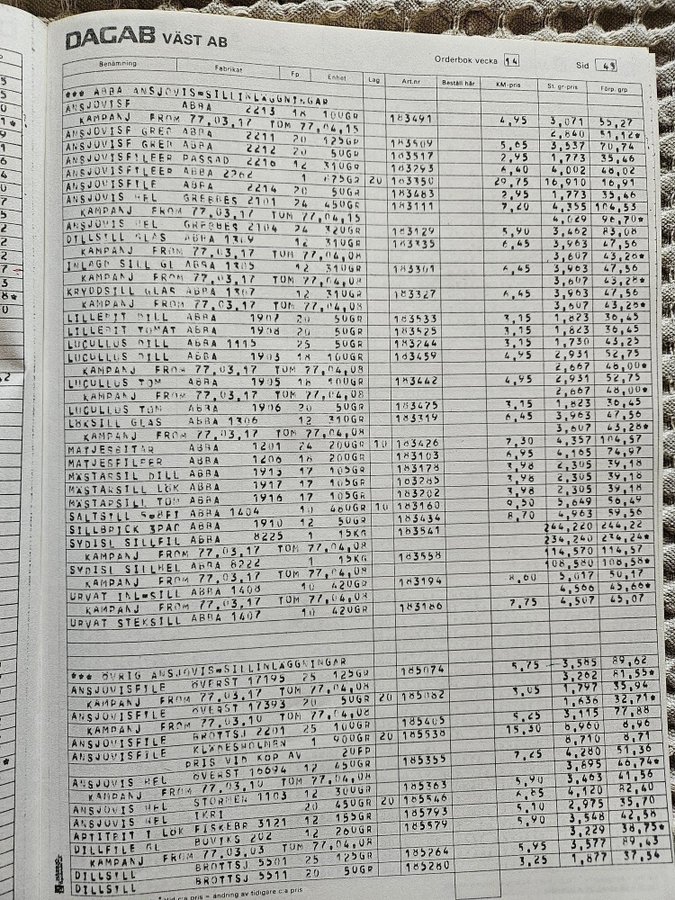 DAGAB VÄST AB
Orderbok vecka 14 Sid 43
Benämning Fabrikat Fp Enhet Lag Art.nr Beställ här KM-pris St. gr-pris Förp. grp
*** ABBA ANSJOVIS=SILLINLÄGGNINGAR
ANSJOVISF ABBA 2213 18 100GR 183491 4,95 3,071 55,27
KAMPANJ FROM 77.03.17 TOM 77.04.15 2,840 51,12*
ANSJOVISF GREB ABBA 2211 20 125GR 183509 5,65 3,537 70,74
ANSJOVISF GREB ABBA 2212 20 50GR 183517 2,95 1,773 35,46
ANSJOVISFILEER PASSAD 2216 12 310GR 183293 6,40 4,002 48,02
ANSJOVISFILEER ABBA 2262 1 675GR 20 183350 16,910 16,91
ANSJOVISFILE ABBA 2214 20 50GR 183483 2,95 1,773 35,46
ANSJOVIS HEL GREBBES 2101 24 450GR 183111 7,20 4,355 104,53
KAMPANJ FROM 77.03.17 TOM 77.04.15 4,029 96,70*
ANSJOVIS HEL GREBBES 2104 24 320GR 183129 5,90 3,462 83,08
DILLSILL GLAS ABBA 1309 12 310GR 183335 6,45 3,963 47,56
KAMPANJ FROM 77.03.17 TOM 77.04.08 3,607 43,28*
INLAGD SILL GL ABBA 1305 12 310GR 183301 6,45 3,963 47,56
KAMPANJ FROM 77.03.17 TOM 77.04.08 3,607 43,28*
KRYDDSILL GLAS ABBA 1307 12 310GR 183327 6,45 3,963 47,56
KAMPANJ FROM 77.03.17 TOM 77.04.08 3,607 43,28*
LILLEBIT DILL ABBA 1907 20 50GR 183533 3,15 1,823 36,45
LILLEBIT TOMAT ABBA 1908 20 50GR 183525 3,15 1,823 36,45
LUCULLUS DILL ABBA 1115 25 50GR 183244 3,15 1,730 43,25
LUCULLUS DILL ABBA 1903 18 100GR 183459 4,95 2,931 52,75
KAMPANJ FROM 77.03.17 TOM 77.04.08 2,667 48,00*
LUCULLUS TOM ABBA 1905 18 100GR 183442 4,95 2,931 52,75
KAMPANJ FROM 77.03.17 TOM 77.04.08 2,667 48,00*
LUCULLUS TOM ABBA 1906 20 50GR 183475 3,15 1,823 36,45
LÖKSILL GLAS ABBA 1306 12 310GR 183319 6,45 3,963 47,56
KAMPANJ FROM 77.03.17 TOM 77.04.08 3,607 43,28*
MATJESBITAR ABBA 1201 24 200GR 10 183426 7,30 4,357 104,57
MATJESFILEER ABBA 1206 18 200GR 183103 6,95 4,165 74,97
MÄSTARSIL DILL ABBA 1915 17 105GR 183178 3,98 2,305 39,18
MÄSTARSILL LÖK ABBA 1917 17 105GR 183285 3,98 2,305 39,18
MÄSTARSILL TOM ABBA 1916 17 105GR 183202 3,98 2,305 39,18
SALTSILL ABBA 1404 10 480GR 10 183160 9,50 5,649 56,49
SILLBRICK 3PAC ABBA 1910 12 50GR 183434 8,70 4,963 59,56
SYDISL SILLFIL ABBA 8225 1 15KG 183541 244,220 244,22
KAMPANJ FROM 77.03.17 TOM 77.04.08 234,240 234,24*
SYDISL SILLHEL ABBA 8222 1 15KG 183558 114,570 114,57
KAMPANJ FROM 77.03.17 TOM 77.04.08 108,580 108,58*
URVAT INL=SILL ABBA 1408 10 420GR 183194 8,60 5,017 50,17
KAMPANJ FROM 77.03.17 TOM 77.04.08 4,566 45,66*
URVAT STEKSILL ABBA 1407 10 420GR 183186 7,75 4,507 45,07
*** ÖVRIG ANSJOVIS=SILLINLÄGGNINGAR
ANSJOVISFILE ÖVERST 17195 25 125GR 185074 5,75 3,585 89,62
KAMPANJ FROM 77.03.17 TOM 77.04.08 3,262 81,55*
ANSJOVISFILE ÖVERST 17393 20 50GR 20 185082 3,05 1,797 35,94
KAMPANJ FROM 77.03.10 TOM 77.04.08 1,636 32,71*
ANSJOVISFILE BROTTSJ 2201 25 100GR 185405 5,25 3,115 77,88
ANSJOVISFILE KLÄDESHOLMEN 1 900GR 20 185538 15,30 8,960 8,96
PRIS VID KÖP AV 2UFP 8,710 8,71
ANSJOVIS HEL ÖVERST 16694 12 450GR 185355 7,25 4,280 51,36
KAMPANJ FROM 77.03.10 TOM 77.04.08 3,895 46,74*
ANSJOVIS HEL STORMEN 1103 12 300GR 185363 5,90 3,463 41,56
ANSJOVIS HEL IKRI 20 450GR 20 185546 6,85 4,120 82,40
APTITBIT I LÖK FISKEBR 3121 12 155GR 185793 5,10 2,975 35,70
DILLFILE GL BOVIKS 202 12 260GR 185579 5,90 3,548 42,58
KAMPANJ FROM 77.03.03 TOM 77.04.08 3,229 38,75*
DILLSILL BROTTSJ 5501 25 125GR 185264 5,95 3,577 89,43
DILLSILL BROTTSJ 5511 20 50GR 185280 3,25 1,877 37,54
* vid c:a pris = ändring av tidigare c:a pris